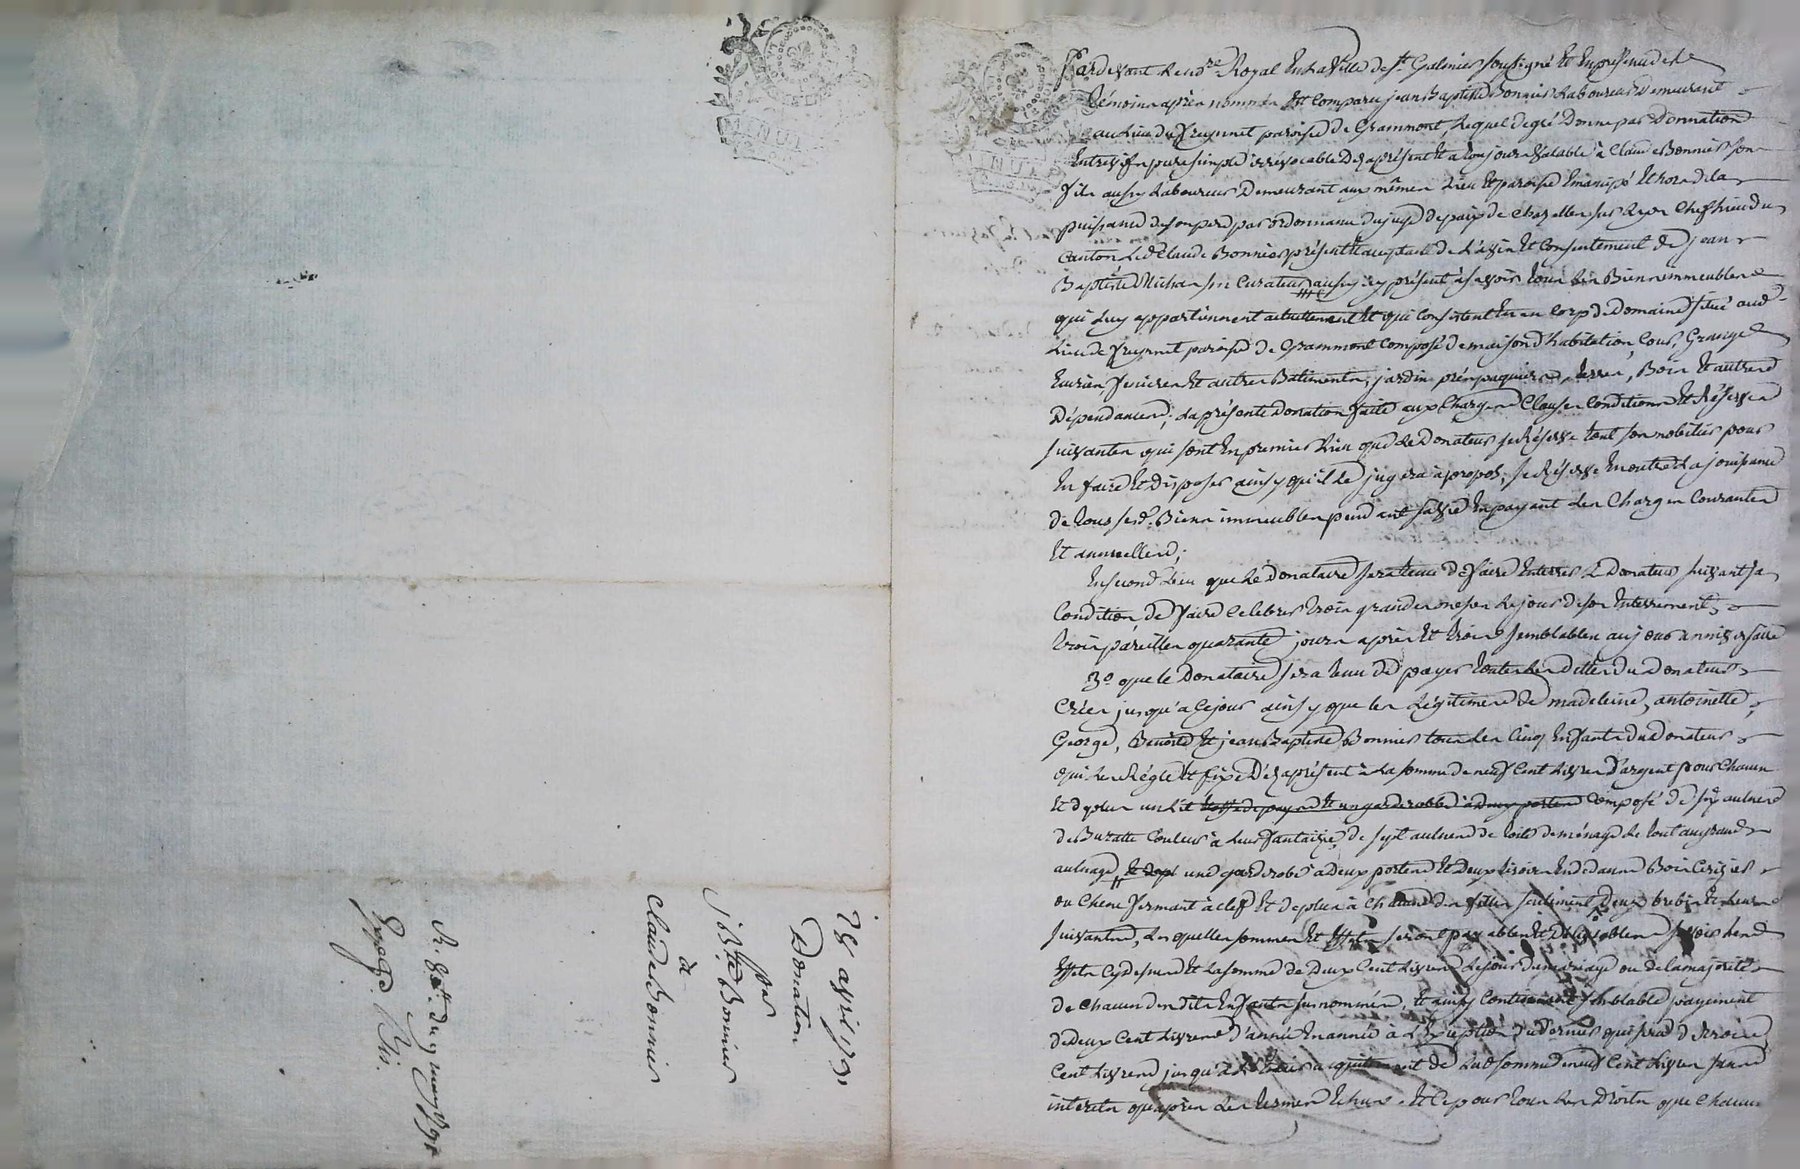 Pardevant le no.re Royal en la Ville de S.t Galmier soussigné et en presence des
témoins après nommés est comparu jean Baptiste Bonnier Laboureur Demeurant
au lieu du freyssinet paroisse de Grammont, lequel de gré Donne par Donnation
entrevifs pure simple irrévocable Dez aprésent et a toujours Valable à Claude Bonnier son
fils aussy Laboureur Demeurant aux mêmes Lieu et paroisse Emancipé et hors de la
puissance de son pere par ordonnance du juge de paix de Chazelles sur Lyon Cheflieu du
Canton led. Claude Bonnier présent et acceptant de L'avis et Consentement de jean
Baptiste son Curateur aussy icy présent, a savoir tous les Biens immeubles
qui Luy appartiennent actuellement et qui Consistent en un Corps de Domaine situé aud.
Lieu de paroisse de Grammont Composé de maison d'habitation, Cour, Grange
Ecuries, et autres Batiments, jardin, prés, paquiers, terres, Bois et autres
Dépendances; La présente donation faite aux Charges Clauses Conditions et Réserves
suivantes qui sont En premier Lieu que Le Donateur se Réserve tout son mobilier pour
En faire et disposer ainsy qu'il le jugera à propos, se Réserve En outre La jouissance
de tous sesd. Biens immeubles pendant sa vie En payant Les Charges Courantes
Et annuelles;
En second Lieu que Le Donataire sera tenu de faire Enterrer Le Donateur suivant sa
Condition, de faire Celebrer trois grandes messes Le jour de son Enterrement,
trois pareilles quarante jours après Et trois semblables au jour anniversaire
3.o que le Donataire sera tenu de payer toutes les dettes du Donateur
Créés jusqu'a Ce jour ainsy que les Légitimes de madeleine, antoinette,
George, Benoite et jean Baptiste Bonnier tous les Cinq Enfants du Donateur
qu'il Les Règle et fixe Dez aprésent à La somme de neuf Cent Livres d'argent pour Chacun
Et de plus un Lit Composé de six aulnes
de Buratte Couleur à Leur fantaisie, de sept aulnes de toile de ménage Le tout au grand
aulnage, une garderobe a deux portes et deux tiroirs En dedans Bois Cerisier
ou Chene fermant à clef Et de plus à Chacune des filles seulement Deux brebis et Leurs
suivants, Lesquelles sommes Et Effets seront payables et Délivrables savoir Les
Effets Cy dessus et La somme de Deux Cent Livres Le jour du mariage ou de la majorité
de Chacun desdits Enfants sus nommés, Et ainsy Continuant semblable payement
de deux Cent Livres d'année En année à L'Exception du Dernier qui sera de trois
Cent Livres jusqu'à Entier acquittement de Lad. somme de neuf Cent Livres sans
interets qu'après Les termes Echus. Et Ce pour tous Les Droits que Chacun
MINUT
MINUT
avril 1791
Donation
par
j.B.te Bonnier
à
Claude Bonnier